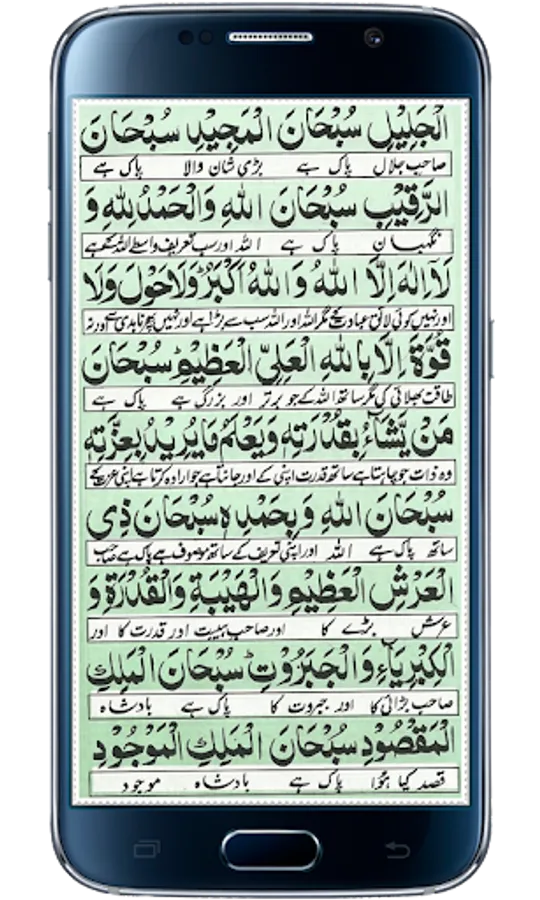 الْجَلِيْلِ سُبْحَانَ الْمَجِيْدِ سُبْحَانَ
صاحب جلال پاک ہے بڑی شان والا پاک ہے
الرَّقِيْبِ سُبْحَانَ اللهِ وَالْحَمْدُ لِلهِ وَ
نگہبان پاک ہے اللہ اور سب تعریف واسطے اللہ کے ہے
لَآ اِلٰهَ اِلَّا اللهُ وَاللهُ اَكْبَرُ وَلَا حَوْلَ وَلَا
اور نہیں کوئی لائق عبادت کے مگر اللہ اور اللہ سب سے بڑا ہے اور نہیں پھرنا بدی سے اور نہ
قُوَّةَ اِلَّا بِاللهِ الْعَلِيِّ الْعَظِيْمِ سُبْحَانَ
طاقت بھلائی کی مگر ساتھ اللہ کے جو برتر اور بزرگ ہے پاک ہے
مَنْ يَّشَآءُ بِقُدْرَتِهٖ وَيَعْلَمُ مَا يُرِيْدُ بِعِزَّتِهٖ
وہ ذات جو چاہتا ہے ساتھ قدرت اپنی کے اور جانتا ہے جو ارادہ کرتا ہے اپنی عزت کے
سُبْحَانَ اللهِ وَبِحَمْدِهٖ سُبْحَانَ ذِي
ساتھ پاک ہے اللہ اور اپنی تعریف کے ساتھ موصوف ہے پاک ہے صاحب
الْعَرْشِ الْعَظِيْمِ وَالْهَيْبَةِ وَالْقُدْرَةِ وَ
عرش بڑے کا اور صاحب ہیبت اور قدرت کا اور
الْكِبْرِيَآءِ وَالْجَبَرُوْتِ سُبْحَانَ الْمَلِكِ
صاحب بڑائی کا اور جبروت کا پاک ہے بادشاہ
الْمَقْصُوْدِ سُبْحَانَ الْمَلِكِ الْمَوْجُوْدِ
قصد کیا ہوا پاک ہے بادشاہ موجود